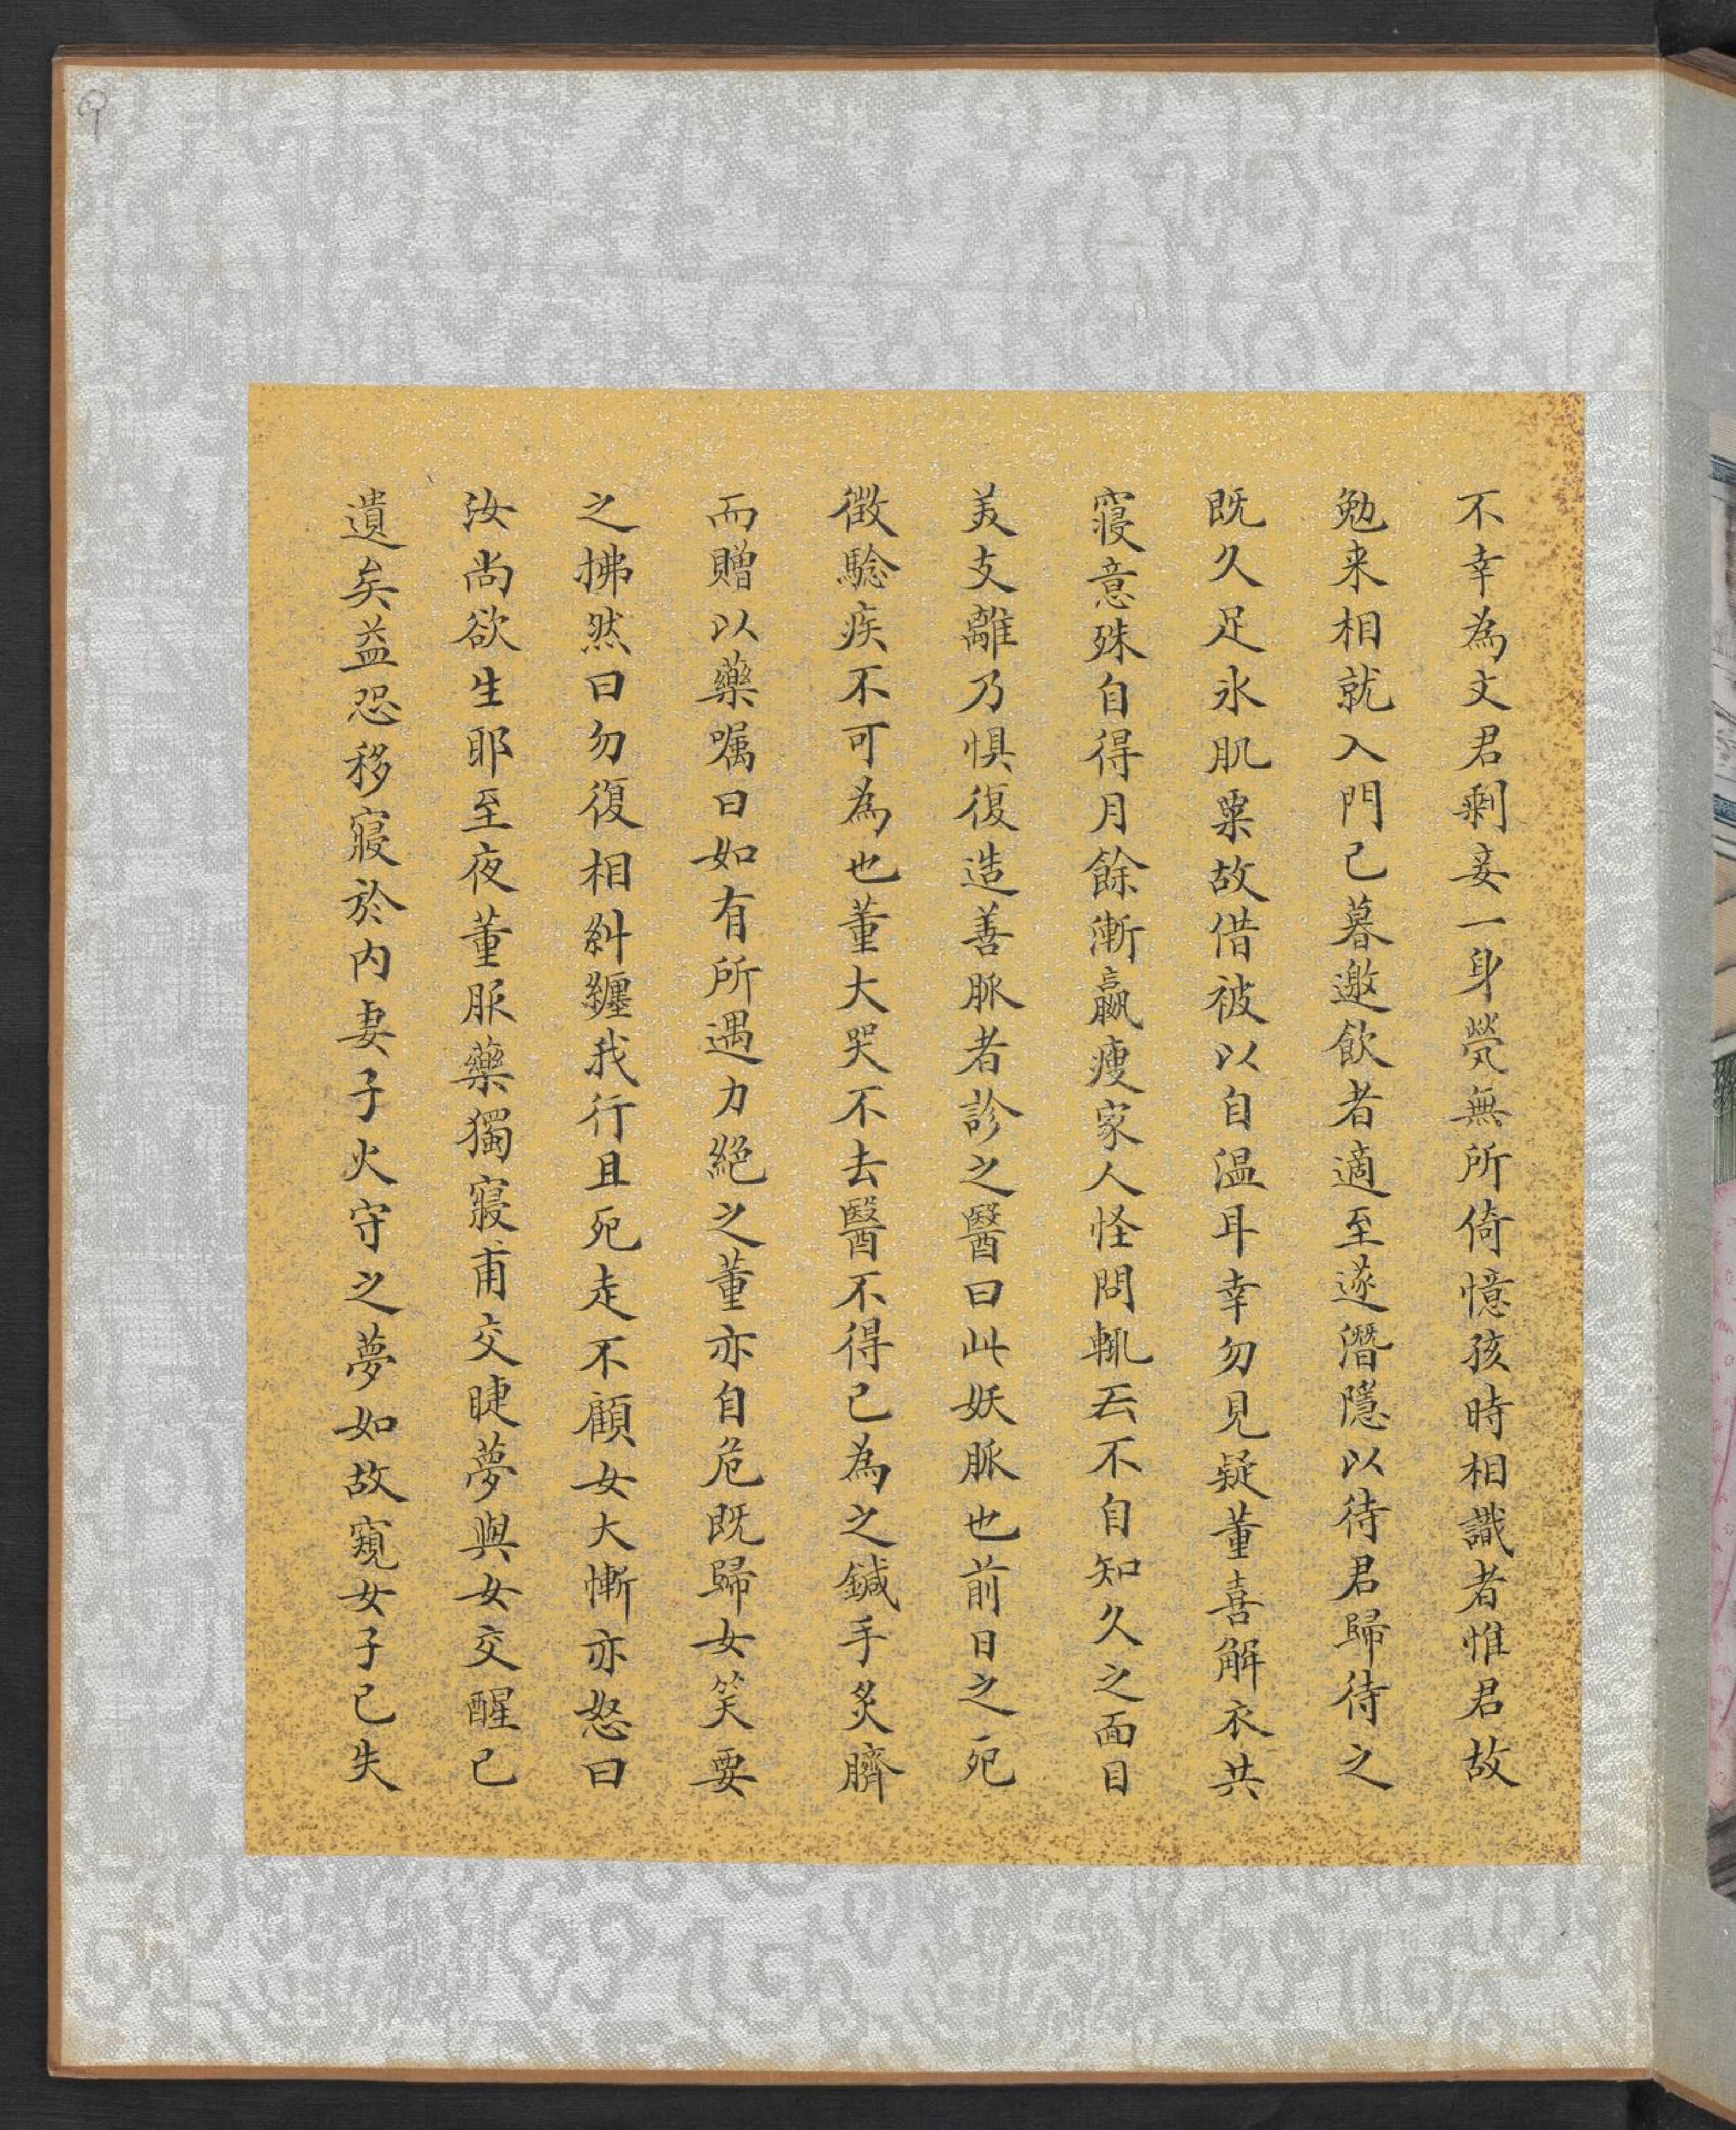 不幸為文君剩妾一身煢無所倚憶孩時相識者惟君故
勉来相就入門已暮邀飲者適至遂潛隱以待君歸待之
既久足氷肌粟故借被以自温耳幸勿見疑董喜解衣共
寢意殊自得月餘漸羸瘦家人怪問輒云不自知久之面目
美支離乃惧復造善脈者診之醫曰此妖脈也前日之死
徴驗疾不可為也董大哭不去醫不得已為之鍼手炙臍
而贈以藥嘱曰如有所遇力絕之董亦自危既歸女笑要
之拂然曰勿復相糾纏我行且死走不顧女大慚亦怒曰
汝尚欲生耶至夜董服藥獨寢甫交睫夢與女交醒已
遺矣益恐移寢於内妻子火守之夢如故窺女子已失
9